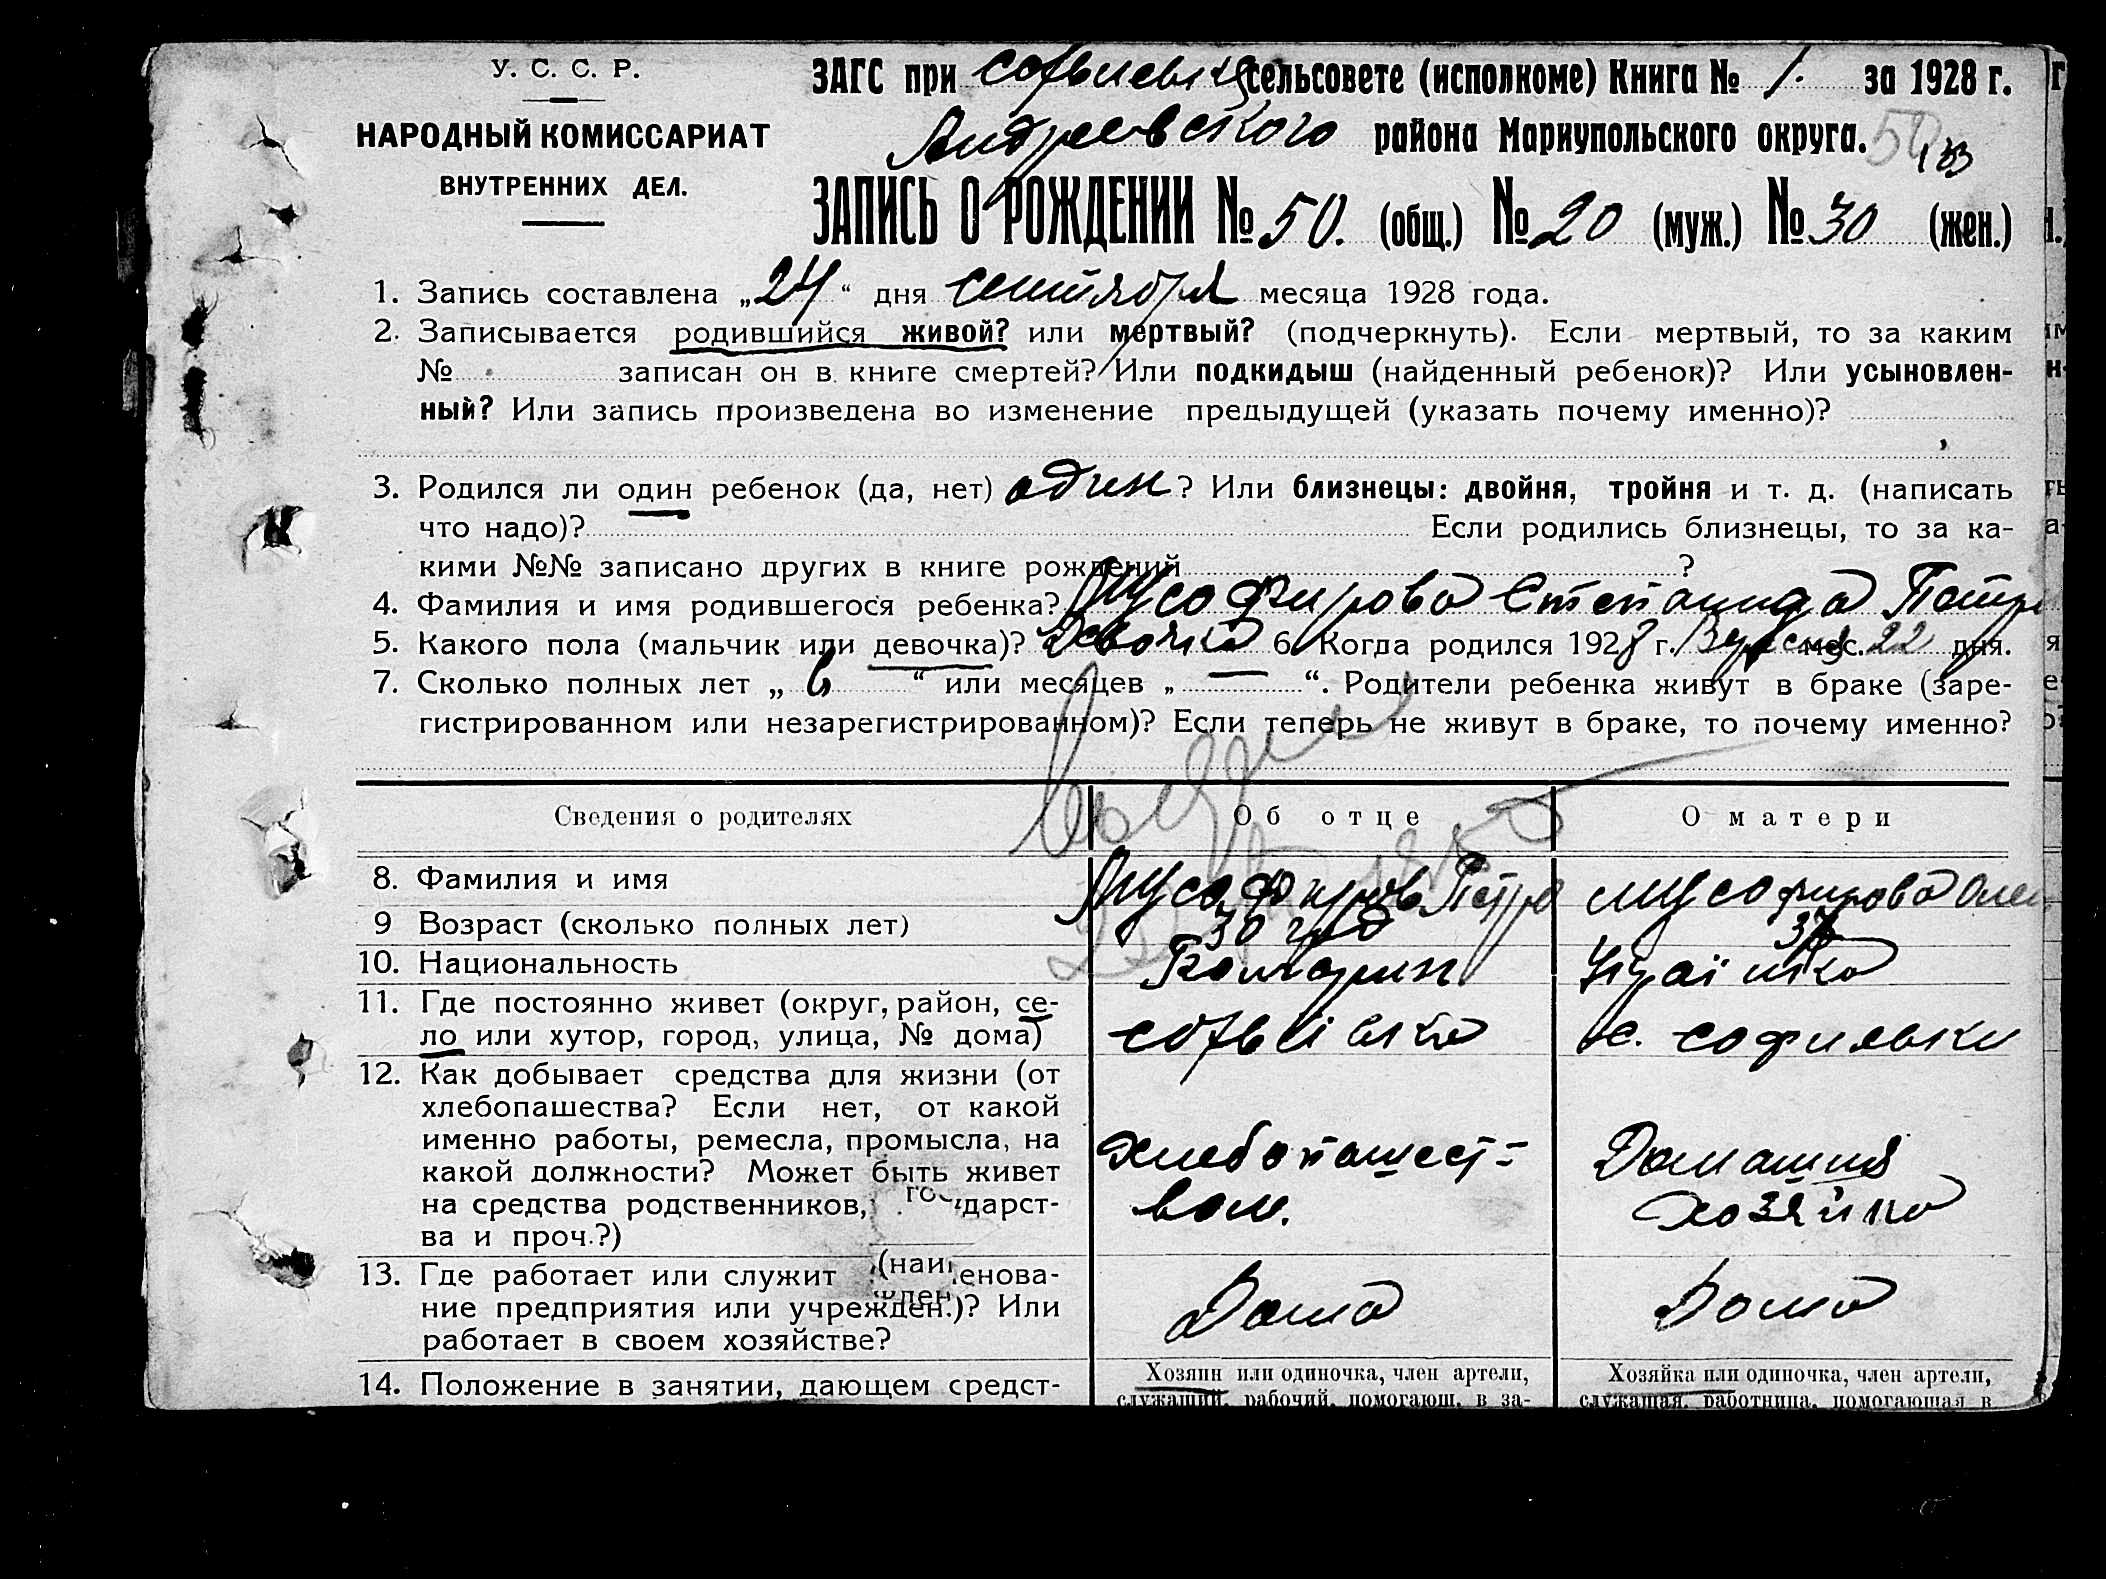 У. С. С. Р.
НАРОДНЫЙ КОМИССАРИАТ
ВНУТРЕННИХ ДЕЛ.
ЗАГС при сельсовете (исполкоме) Книга № 1. за 1928 г.
Андреевского района Мариупольского округа.
50 133
ЗАПИСЬ О РОЖДЕНИИ № 50. (общ.) № 20 (муж.) № 30 (жен.)
1. Запись составлена „24“ дня сентября месяца 1928 года.
2. Записывается родившийся живой? или мертвый? (подчеркнуть). Если мертвый, то за каким
№ записан он в книге смертей? Или подкидыш (найденный ребенок)? Или усыновлен-
ный? Или запись произведена во изменение предыдущей (указать почему именно)?
3. Родился ли один ребенок (да, нет) один? Или близнецы: двойня, тройня и т. д. (написать
что надо)? Если родились близнецы, то за ка-
кими №№ записано других в книге рождений ?
4. Фамилия и имя родившегося ребенка? Мусофирова Степанида Петр
5. Какого пола (мальчик или девочка)? Девочка 6. Когда родился 1928 г. Вересня мес. 22 дня.
7. Сколько полных лет „ в “ или месяцев „ — “. Родители ребенка живут в браке (заре-
гистрированном или незарегистрированном)? Если теперь не живут в браке, то почему именно?
Сведения о родителях Об отце О матери
8. Фамилия и имя Мусофиров Петро Мусофирова Олен
9 Возраст (сколько полных лет) 30 год 37
10. Национальность Болгарин Украінка
11. Где постоянно живет (округ, район, се-
ло или хутор, город, улица, № дома) с. Софиевки
12. Как добывает средства для жизни (от
хлебопашества? Если нет, от какой
именно работы, ремесла, промысла, на
какой должности? Может быть живет
на средства родственников, государст-
ва и проч.?)
Хлебопашест-
вом.
Домашня
хозяйка
13. Где работает или служит (наименова-
ние предприятия или учрежден.)? Или
работает в своем хозяйстве?
Дома Дома
14. Положение в занятии, дающем средст-
Хозяин или одиночка, член артели,
служащий, рабочий, помогающ. в за-
Хозяйка или одиночка, член артели,
служащая, работница, помогающая в